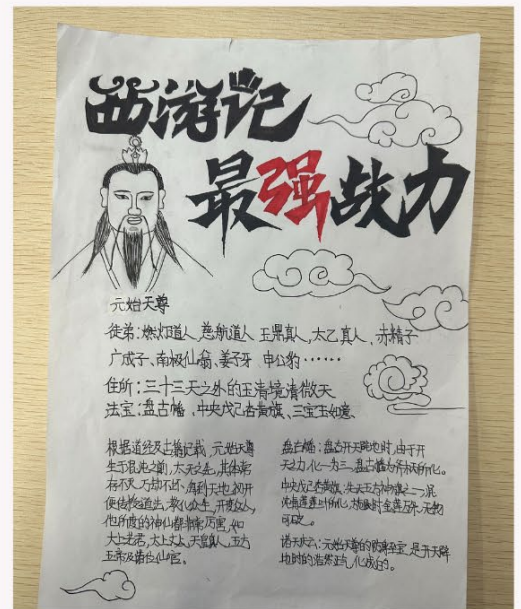 西游记
最强战力
元始天尊
徒弟：燃灯道人、慈航道人、玉鼎真人、太乙真人、赤精子
广成子、南极仙翁、姜子牙、申公豹……
住所：三十三天之外的玉清境清微天
法宝：盘古幡、中央戊己杏黄旗、三宝玉如意、
根据道经及古籍记载，元始天尊
生于混沌之前，太无之先，其体常
存不灭，万劫不坏，每到天地初开
便传授道法，教化众生，开度
他所度的神仙都非常厉害，如
太上老君，太上丈人，天皇真人，五方
五帝及诸位仙官。
盘古幡：盘古开天辟地时，由于开
天之力，化一为三，盘古幡为斧
中央戊己杏黄旗：先天五方神旗之一
可破。
元始天尊的防御至宝，是开天辟
地时的浩然正气化成的。